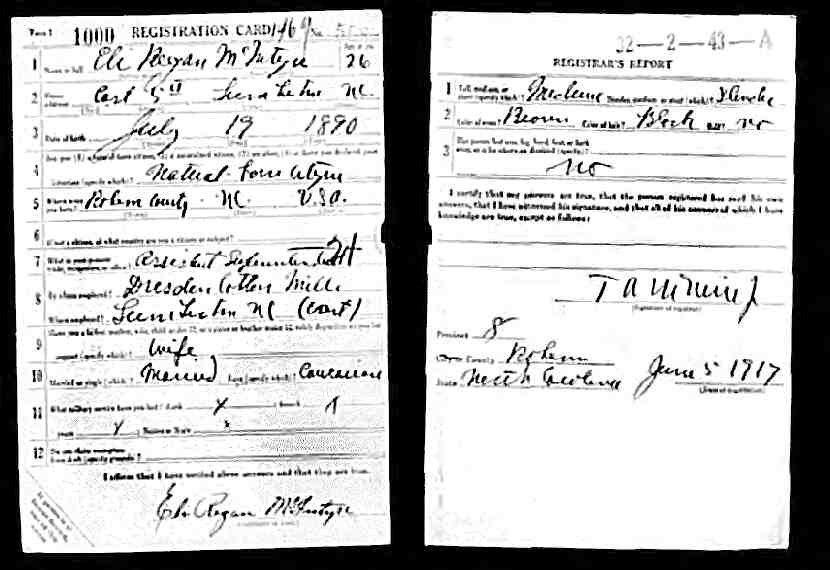 Form 1 1000 REGISTRATION CARD No.
1 Name in full Eli Regan McIntyre Age in yrs 26
2 Home address East 5th Lumberton NC
3 Date of birth July 19 1890
4 Are you (1) a natural-born citizen, (2) a naturalized citizen, (3) an alien, (4) or have you declared your
intention (specify which)? Natural born citizen
5 Where were you born? Robeson County NC U.S.A.
6 If not a citizen, of what country are you a citizen or subject?
7 What is your present trade, occupation, or office? Assistant Superintendent 24
8 By whom employed? Dresden Cotton Mills
Where employed? Lumberton NC (East)
9 Have you a father, mother, wife, child under 12, or a sister or brother under 12, solely dependent on you for
support (specify which)? Wife
10 Married or single (which)? Married Race (specify which)? Caucasian
11 What military service have you had? Rank X branch
years X Nation or State X
12 Do you claim exemption from draft (specify grounds)?
I affirm that I have verified above answers and that they are true.
Eli Regan McIntyre
32—2—43—A
REGISTRAR'S REPORT
1 Tall, medium, or short (specify which)? Medium Slender, medium, or stout (which)? Slender
2 Color of eyes? Brown Color of hair? Black Bald? No
3 Has person lost arm, leg, hand, foot, or both
eyes, or is he otherwise disabled (specify)?
No
I certify that my answers are true, that the person registered has read his own
answers, that I have witnessed his signature, and that all of his answers of which I have
knowledge are true, except as follows:
(Signature of registrar)
Precinct 8
County Robeson
State North Carolina June 5 1917
(Date of registration)